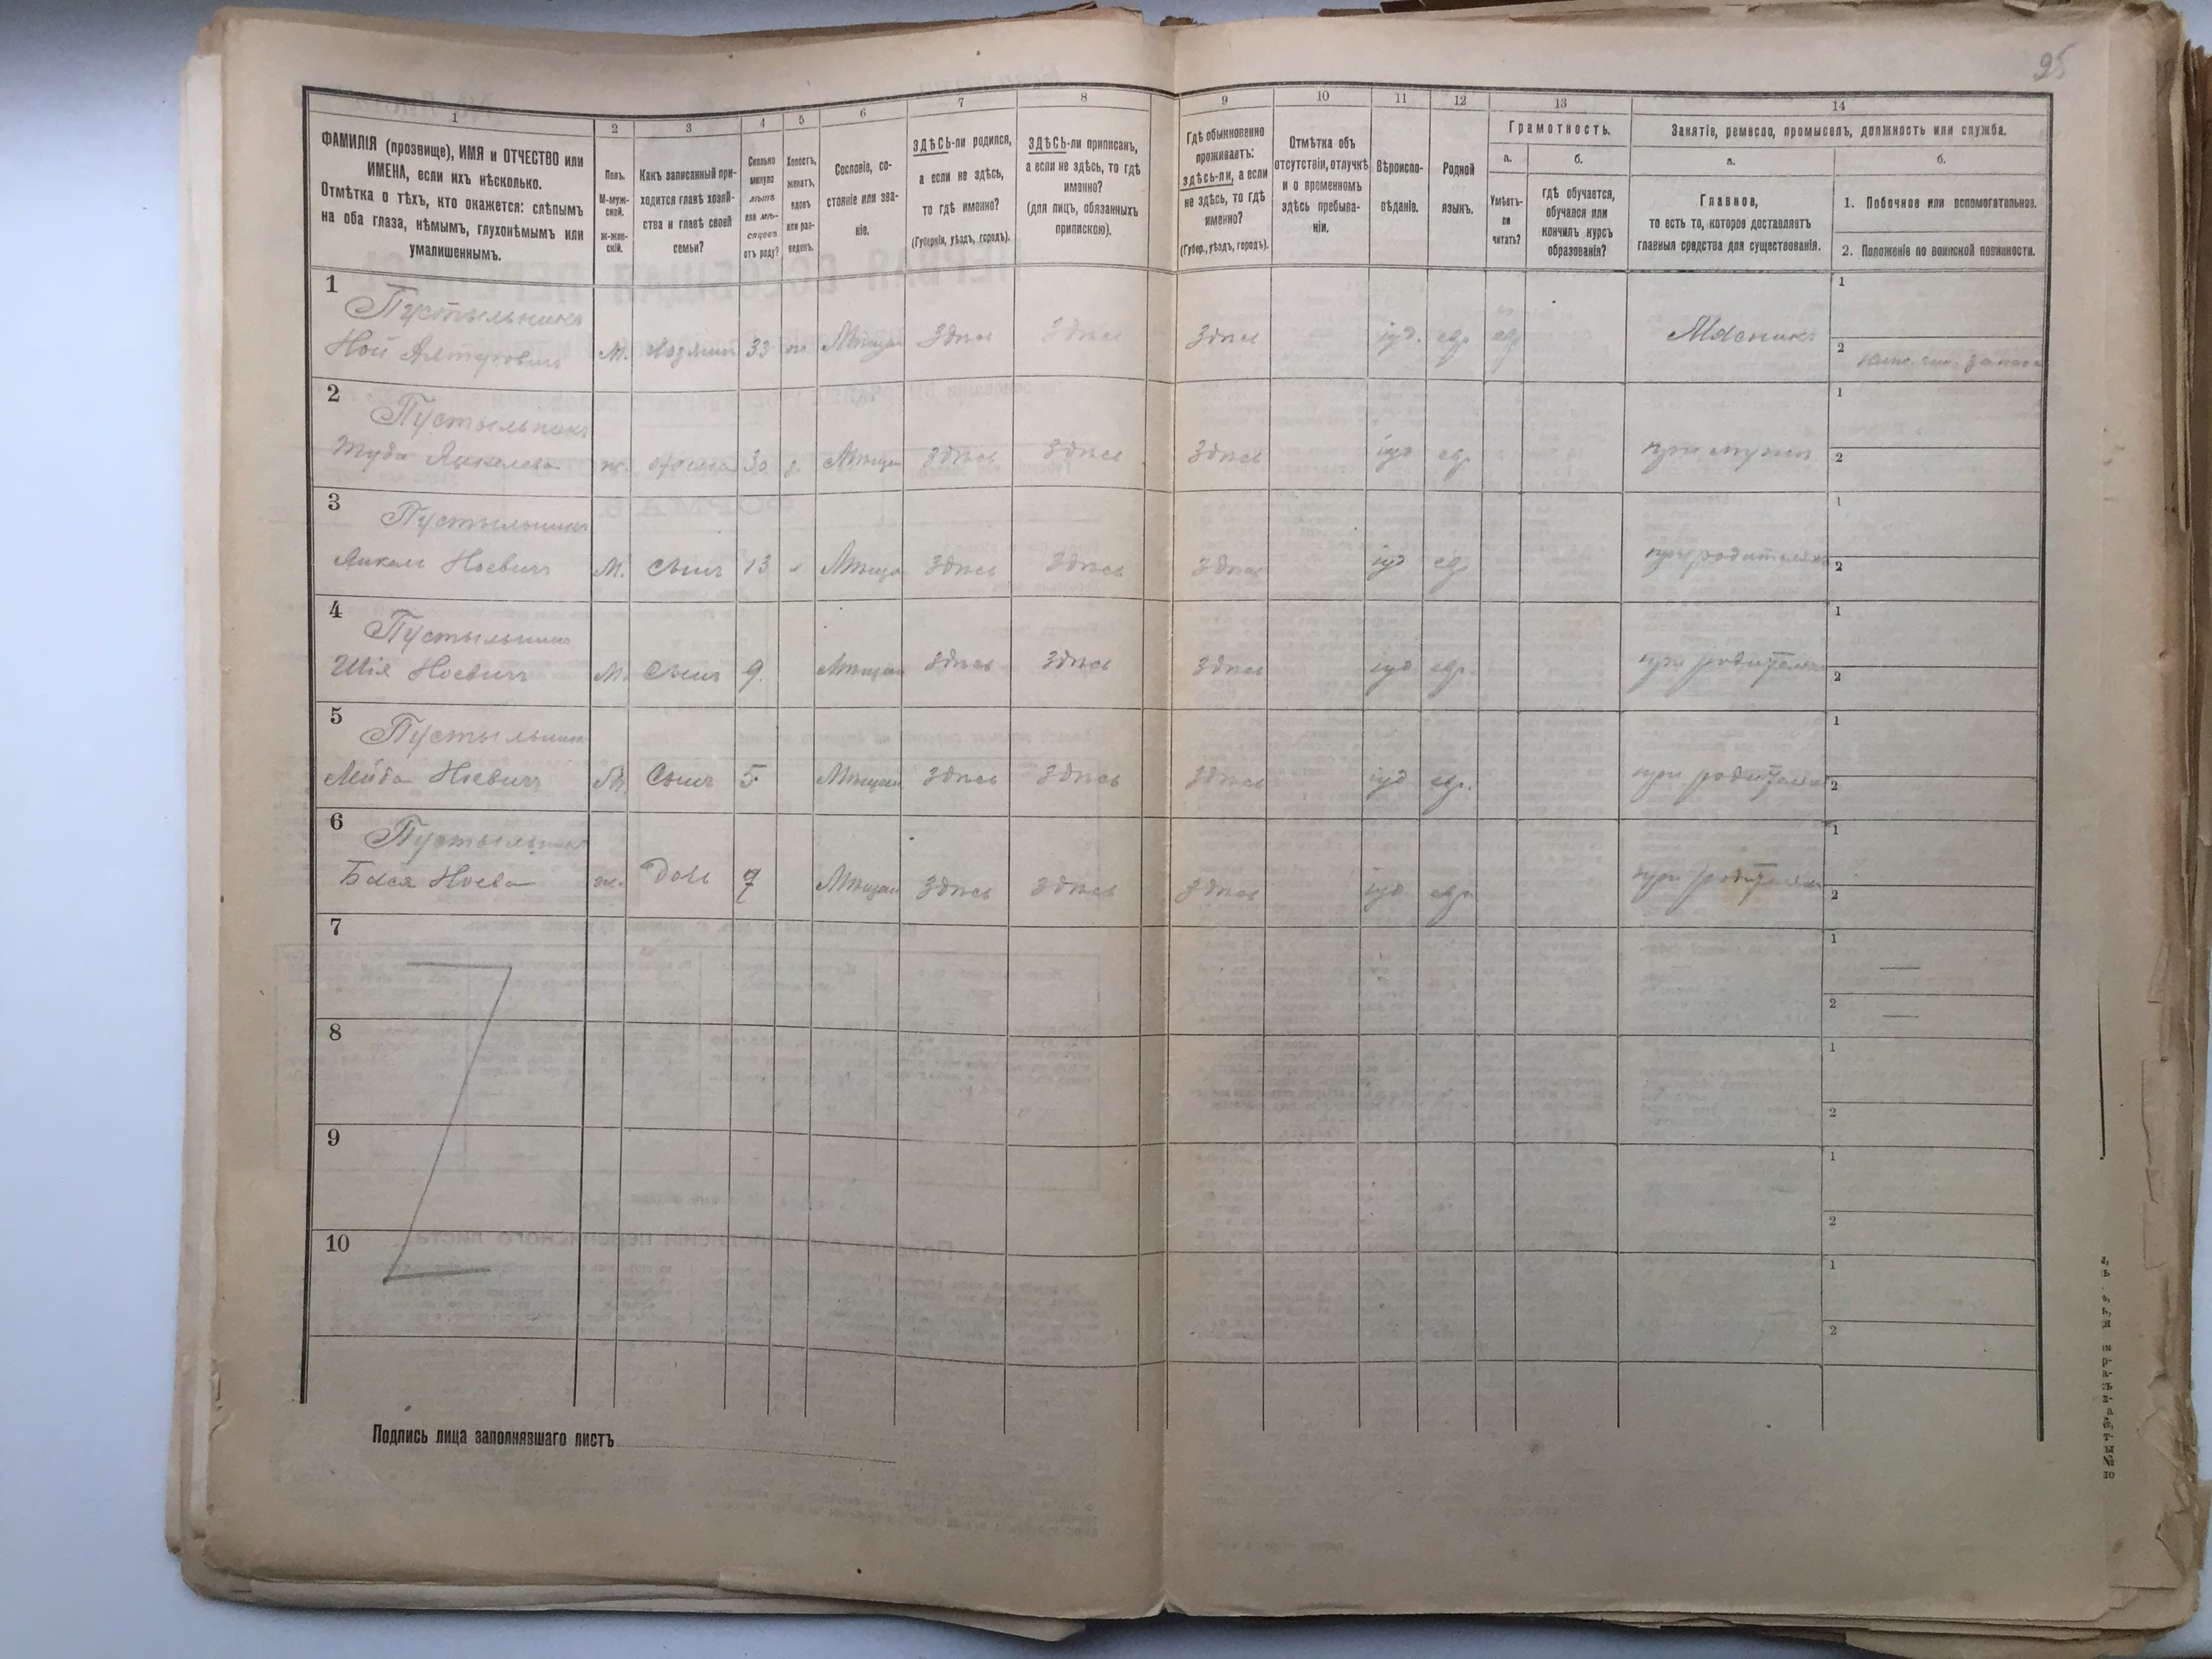 95
1
2
3
4
5
6
7
8
9
10
11
12
13
14
ФАМИЛІЯ (прозвище), ИМЯ и ОТЧЕСТВО или
ИМЕНА, если ихъ нѣсколько.
Отмѣтка о тѣхъ, кто окажется: слѣпымъ
на оба глаза, нѣмымъ, глухонѣмымъ или
умалишеннымъ.
Полъ.
М-муж-
ской.
Ж-жен-
скій.
Какъ записанный при-
ходится главѣ хозяй-
ства и главѣ своей
семьи?
Сколько
минуло
лѣтъ
или мѣ-
сяцевъ
отъ роду?
Холостъ,
женатъ,
вдовъ
или раз-
веденъ.
Сословіе, со-
стояніе или зва-
ніе.
ЗДѢСЬ-ли родился,
а если не здѣсь,
то гдѣ именно?
(Губернія, уѣздъ, городъ).
ЗДѢСЬ-ли приписанъ,
а если не здѣсь, то гдѣ
именно?
(для лицъ, обязанныхъ
припискою).
Гдѣ обыкновенно
проживаетъ:
здѣсь-ли, а если
не здѣсь, то гдѣ
именно?
(Губер., уѣздъ, городъ).
Отмѣтка объ
отсутствіи, отлучкѣ
и о временномъ
здѣсь пребыва-
ніи.
Вѣроиспо-
вѣданіе.
Родной
языкъ.
Грамотность.
а.
Умѣетъ-
ли
читать?
б.
гдѣ обучается,
обучался или
кончилъ курсъ
образованія?
Занятіе, ремесло, промыселъ, должность или служба.
а.
Главное,
то есть то, которое доставляетъ
главныя средства для существованія.
б.
1. Побочное или вспомогательное.
2. Положеніе по воинской повинности.
1
Пустыльникъ
Ной М. хозяинъ 33 ж Мѣщан Здѣсь Здѣсь Здѣсь іуд. евр евр Мясникъ
1
2
2
Пустыльникъ
ж. 30 Мѣщан Здѣсь Здѣсь Здѣсь іуд евр. при мужѣ
1
2
3
Пустыльникъ
Янкель Ноевичъ М. Сынъ 13 Мѣщан Здѣсь Здѣсь Здѣсь іуд евр. при родителяхъ
1
2
4
Пустыльникъ
Шія Ноевичъ М. Сынъ 9. Мѣщан Здѣсь Здѣсь Здѣсь іуд евр. при родителяхъ
1
2
5
Пустыльник
Лейба Ноевичъ М. Сынъ 5 Мѣщан Здѣсь Здѣсь Здѣсь іуд евр. при родителях
1
2
6
Пустыльник
Бася Ноева ж. Дочь Мѣщан Здѣсь Здѣсь Здѣсь іуд. евр. при родителях
1
2
7
1
2
8
1
2
9
1
2
10
1
2
Подпись лица заполнявшаго листъ